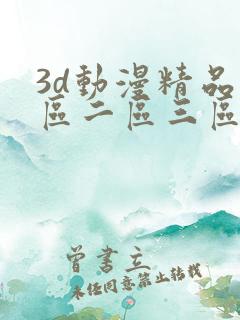 3d動漫精品
區二區三區
曾書立
未经同意禁止转载